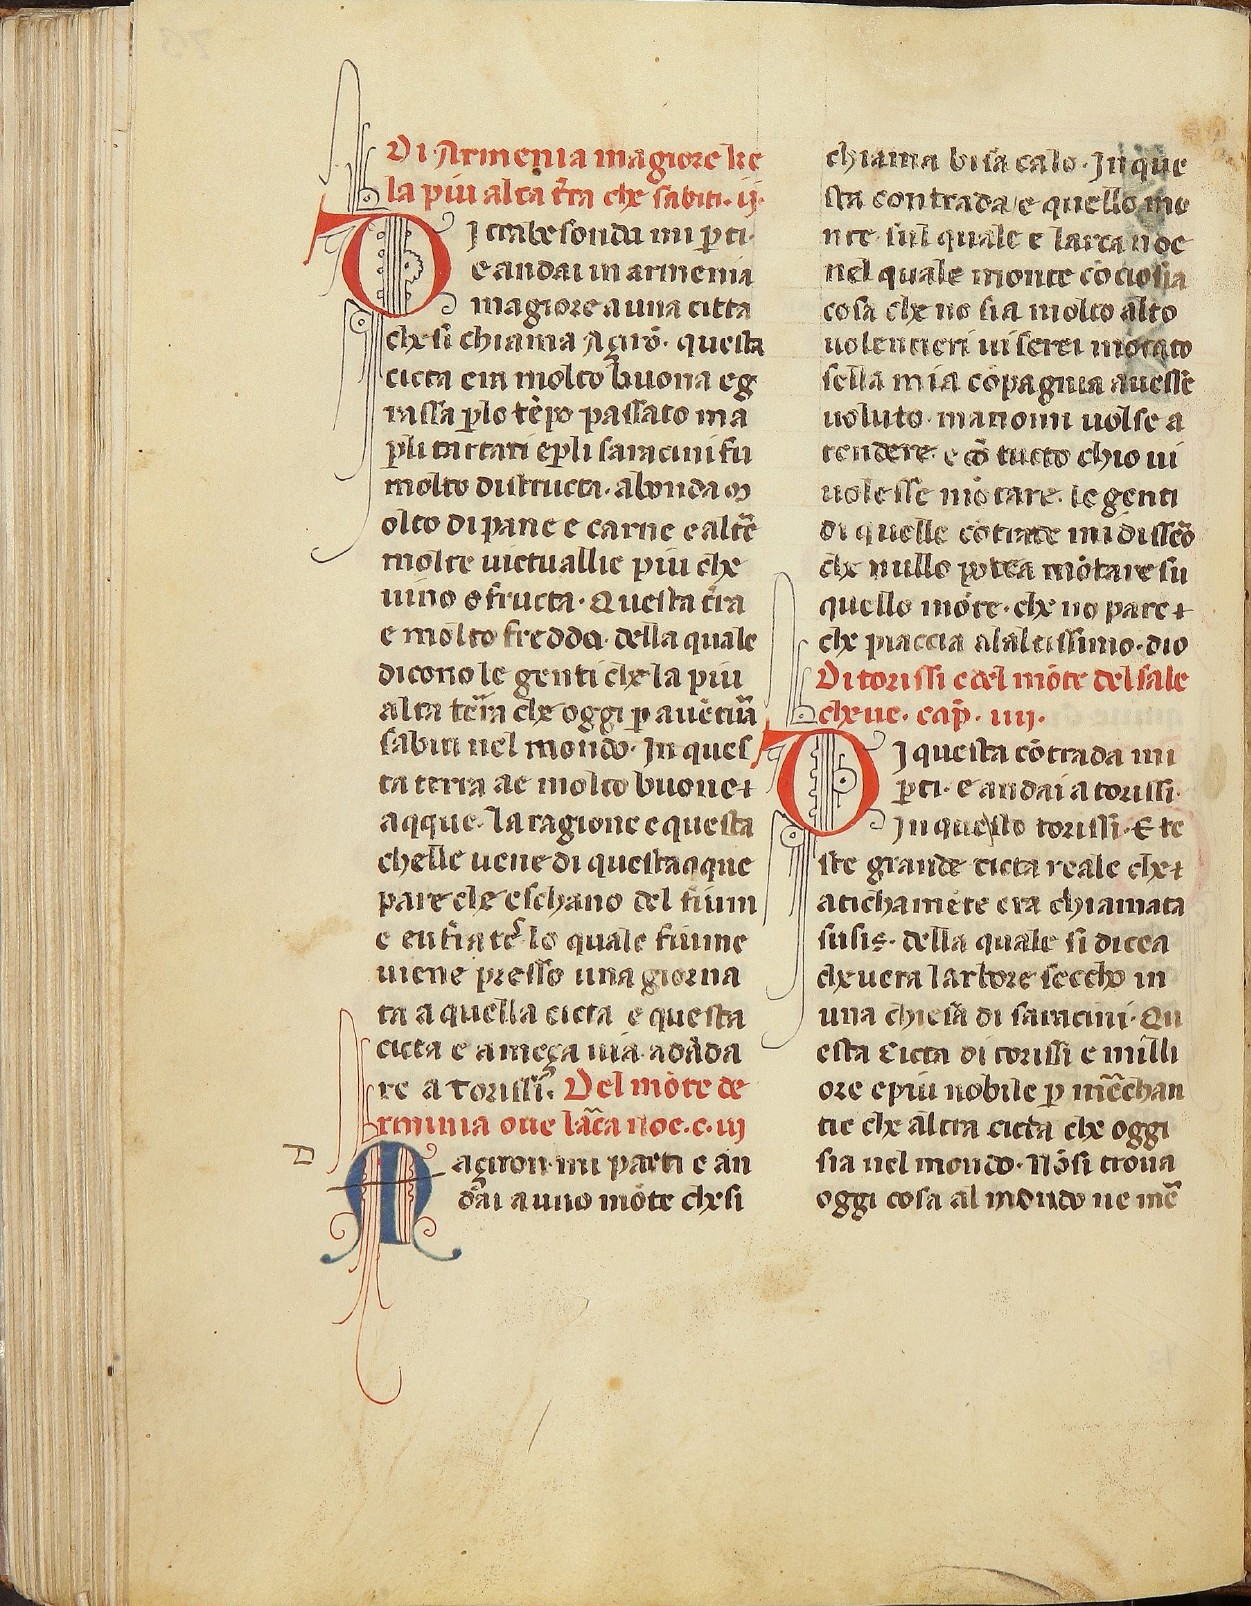 Di Armenia magiore he
la piu alta t̄ra che sabiti. ij.
DI trabesonda mi p̱ti.
e andai in armenia
magiore a una citta
che si chiama Açirō. questa
cicta era molto buona eg
rassa p̱lo tēpo passato ma
p̱li tartari ep̱li saracini fu
molto distructa. abonda m
olto di pane e carne e altr̄e
molte uictuallie piu che
uino o fructa. Questa t̄ra
e molto fredda. della quale
dicono le genti che la piu
alta ter̄a che oggi p̱ auētur̄a
sabiti nel mondo. In ques
ta terra ae molto buone
aqque. la ragione e questa
chelle uene di questaqque
pare che eschano del fium
e eufrate lo quale fiume
uiene presso una giorna
ta a quella cicta e questa
cicta e a meça uia. adāda
re a Torissi. Del mōte de
rminia oue lar̄ca noe. c. iij
DA açiron mi parti e an
dai a uno mōte che si
chiama bisa calo. In que
sta contrada e quello mo
nte sul quale e larca noe
nel quale monte cōciosia
cosa che no sia molto alto
uolentieri ui serei mōtato
sella mia cōpagnia auesse
uoluto. ma non ui uolse a
tendere. e cō tucto chio ui
uolesse mōtare. le genti
di quelle cōtrade mi dissēo
che nullo potea mōtare su
quello mōte. che no pare
che piaccia alaltissimo. dio
Di torissi e del mōte del sale
che ue. cap̄. iiij.
DI questa cōtrada mi
p̱ti. e andai a torissi.
In questo torissi. E te
ste grande cicta reale che
atichamēte era chiamata
susis. della quale si dicea
che uera larbore seccho in
una chiesa di saracini. Qu
esta cicta di torissi e milli
ore e piu nobile p̱ mēchan
tie che altra cicta che oggi
sia nel mondo. Nōsi troua
oggi cosa al mondo ne mē